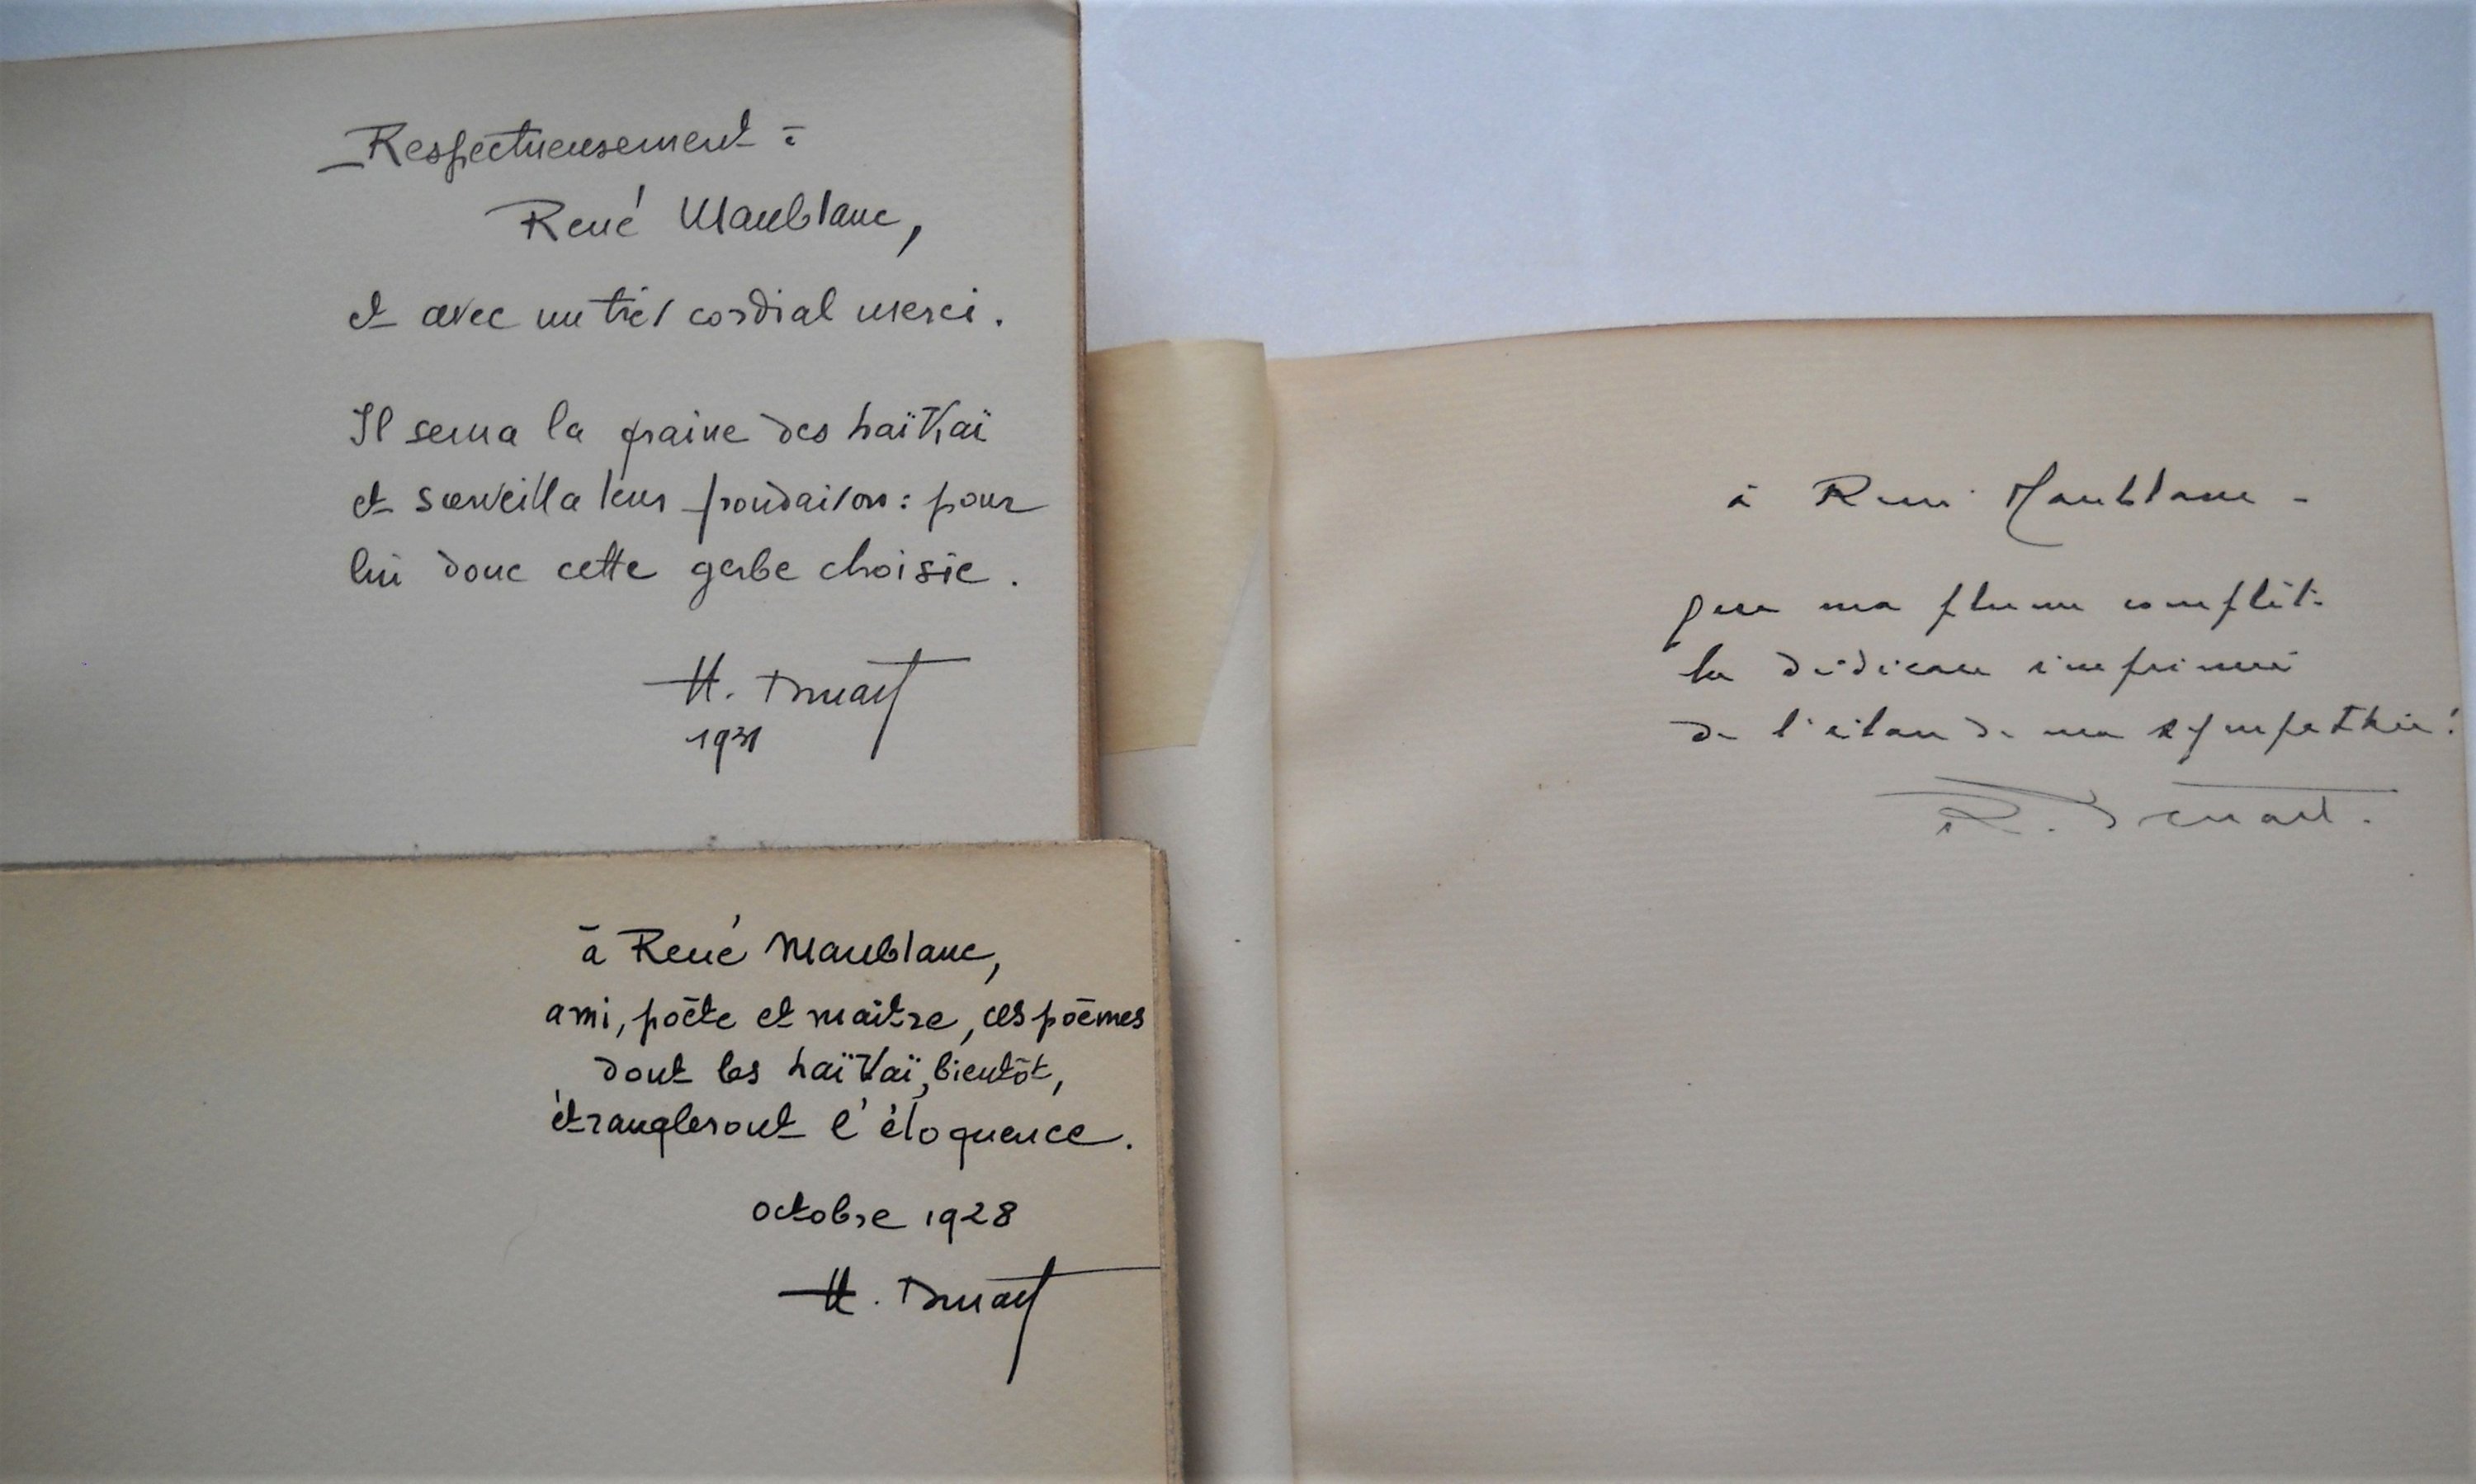 Respectueusement à
René Maublanc,
et avec un très cordial merci.
Il sema la graine des haïkaï
et surveilla leur frondaison : pour
lui donc cette gerbe choisie.
H. Druart
1931
à René Maublanc,
ami, poète et maître, ces poèmes
dont les haïkaï, bientôt,
étrangleront l'éloquence.
octobre 1928
H. Druart
à René Maublanc -
que ma plume complète
la dédicace imprimée
de l'élan de ma sympathie !
R. Druart.